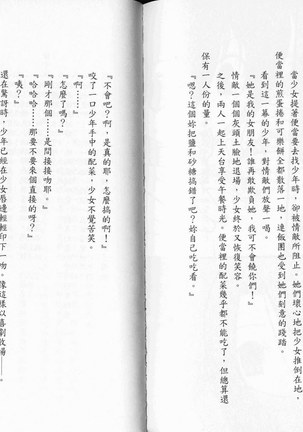 當少女提著便當要去找少年時，卻被情敵所阻止。她們壞心地把少女推倒在地，
便當裡的煎蛋捲和可樂餅全都散落一地，連飯團也受到她們刻意的踐踏。
看到這一幕的少年，對情敵們放聲一喝。
『她是我的女朋友！誰再敢欺負她，我可不會饒你們！』
情敵一個個灰頭土臉地退場，少女終於又恢復笑容。
之後，兩人一起上天台享受午餐時光。便當裡的配菜幾乎都不能吃了，但總算還
保有一人份的量。
『嗯？這個妳把鹽和砂糖搞錯了吧？妳自己吃吃看。』
『不會吧？啊，是真的耶，怎麼搞的啊！』
咬了一口少年手中的配菜，少女不覺苦笑。
『啊……』
『怎麼了嗎？』
『剛才那個……是間接接吻耶。』
『咦？』
『哈哈哈……那要不要來個直接的呀？』
還在驚訝時，少年已經在少女唇邊輕輕印下一吻。像這樣以喜劇收場——。